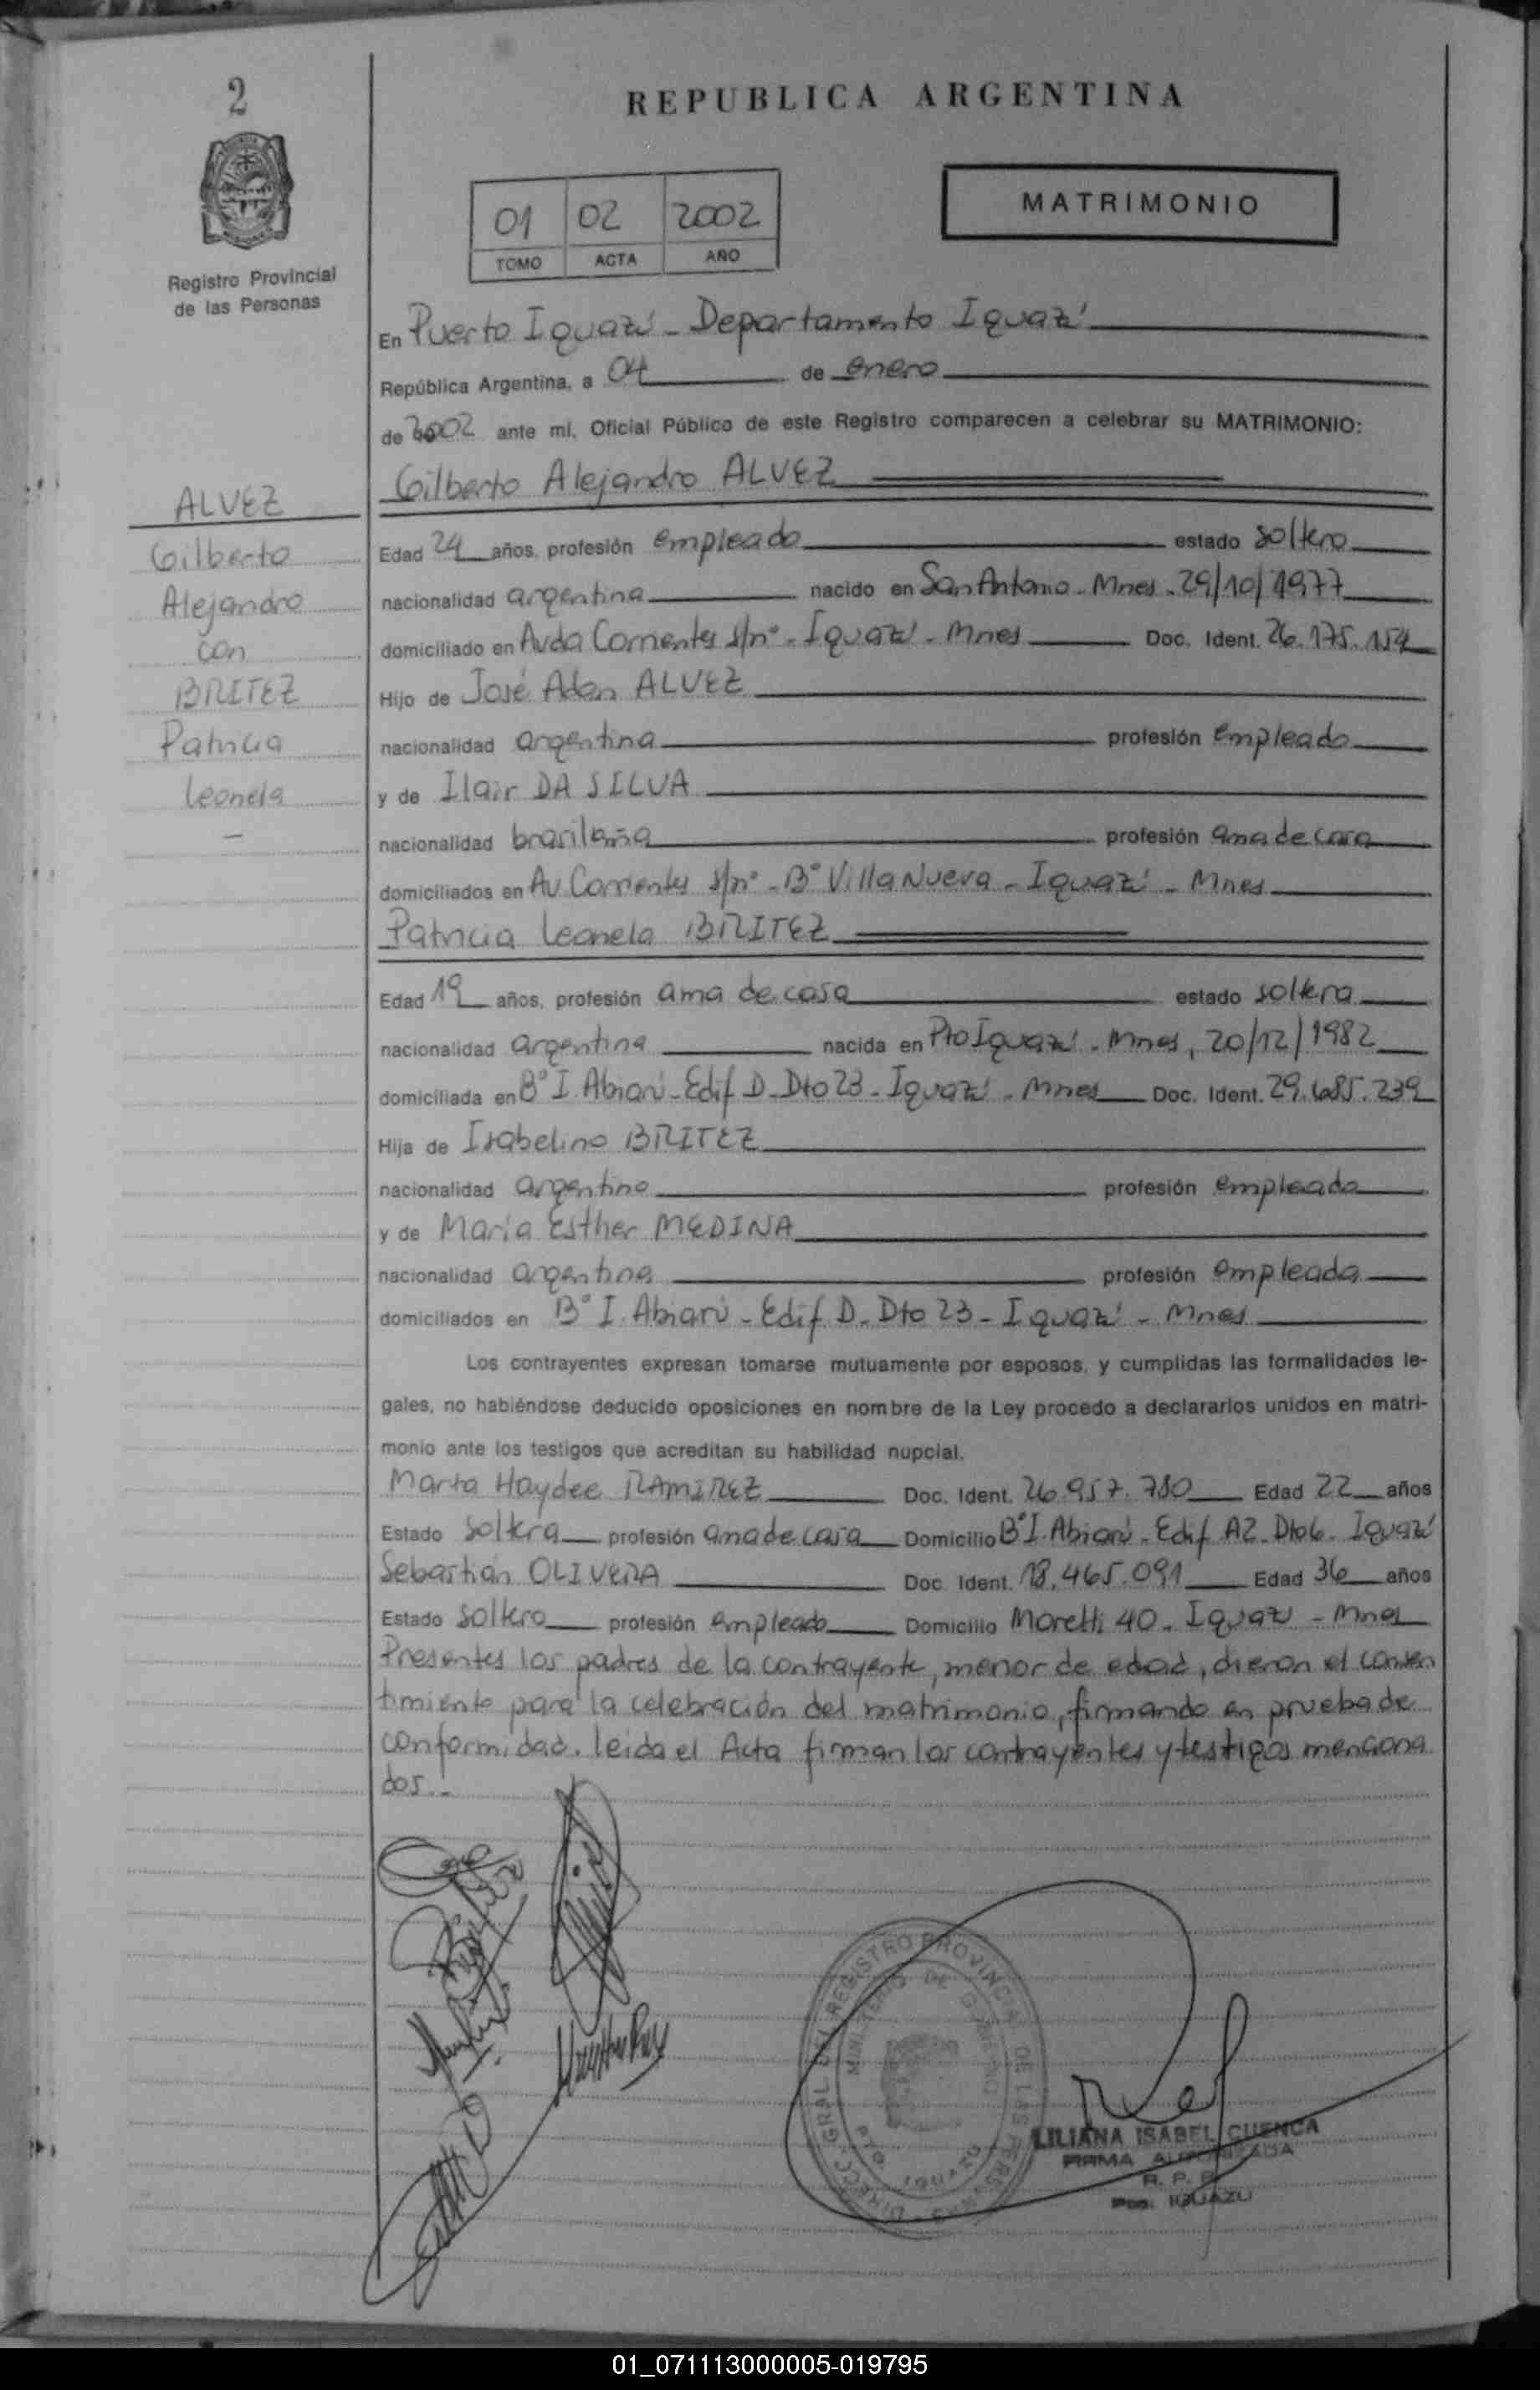 2
REPUBLICA ARGENTINA
01 02 2002
TOMO ACTA AÑO
MATRIMONIO
Registro Provincial
de las Personas
En Puerto Iguazú - Departamento Iguazú
República Argentina, a 04 de enero
de 2002 ante mí, Oficial Público de este Registro comparecen a celebrar su MATRIMONIO:
ALVEZ
Gilberto
Alejandro
con
BRITEZ
Patricia
Leonela
-
Gilberto Alejandro ALVEZ
Edad 24 años, profesión empleado estado soltero
nacionalidad argentina nacido en San Antonio - Mnes - 29/10/1977
domiciliado en Avda Corrientes s/nº - Iguazú - Mnes Doc. Ident. 26.175.154
Hijo de José Aden ALVEZ
nacionalidad argentina profesión empleado
y de Ilair DA SILVA
nacionalidad brasileña profesión ama de casa
domiciliados en Av Corrientes s/nº - Bº Villa Nueva - Iguazú - Mnes
Patricia Leonela BRITEZ
Edad 19 años, profesión ama de casa estado soltera
nacionalidad argentina nacida en Pto Iguazú - Mnes, 20/12/1982
domiciliada en Bº I. Abiarú - Edif D - Dto 23 - Iguazú - Mnes Doc. Ident. 29.685.239
Hija de Isabelino BRITEZ
nacionalidad argentino profesión empleado
y de María Esther MEDINA
nacionalidad argentina profesión empleada
domiciliados en Bº I. Abiarú - Edif D - Dto 23 - Iguazú - Mnes
Los contrayentes expresan tomarse mutuamente por esposos, y cumplidas las formalidades le-
gales, no habiéndose deducido oposiciones en nombre de la Ley procedo a declararlos unidos en matri-
monio ante los testigos que acreditan su habilidad nupcial.
Marta Haydee RAMIREZ Doc. Ident. 26.957.780 Edad 22 años
Estado soltera profesión ama de casa Domicilio Bº I. Abiarú - Edif A2 - Dto 6 - Iguazú
Sebastián OLIVERA Doc. Ident. 18.465.091 Edad 36 años
Estado soltero profesión empleado Domicilio Moretti 40 - Iguazu - Mnes
Presentes los padres de la contrayente, menor de edad, dieron el consen
timiento para la celebración del matrimonio, firmando en prueba de
conformidad. leida el Acta firman los contrayentes y testigos menciona
dos.-
DIRECC. GRAL. DEL REGISTRO PROVINCIAL DE LAS PERSONAS
MINISTERIO DE GOBIERNO
LILIANA ISABEL CUENCA
FIRMA AUTORIZADA
R. P. P.
Pto. IGUAZU
01_071113000005-019795